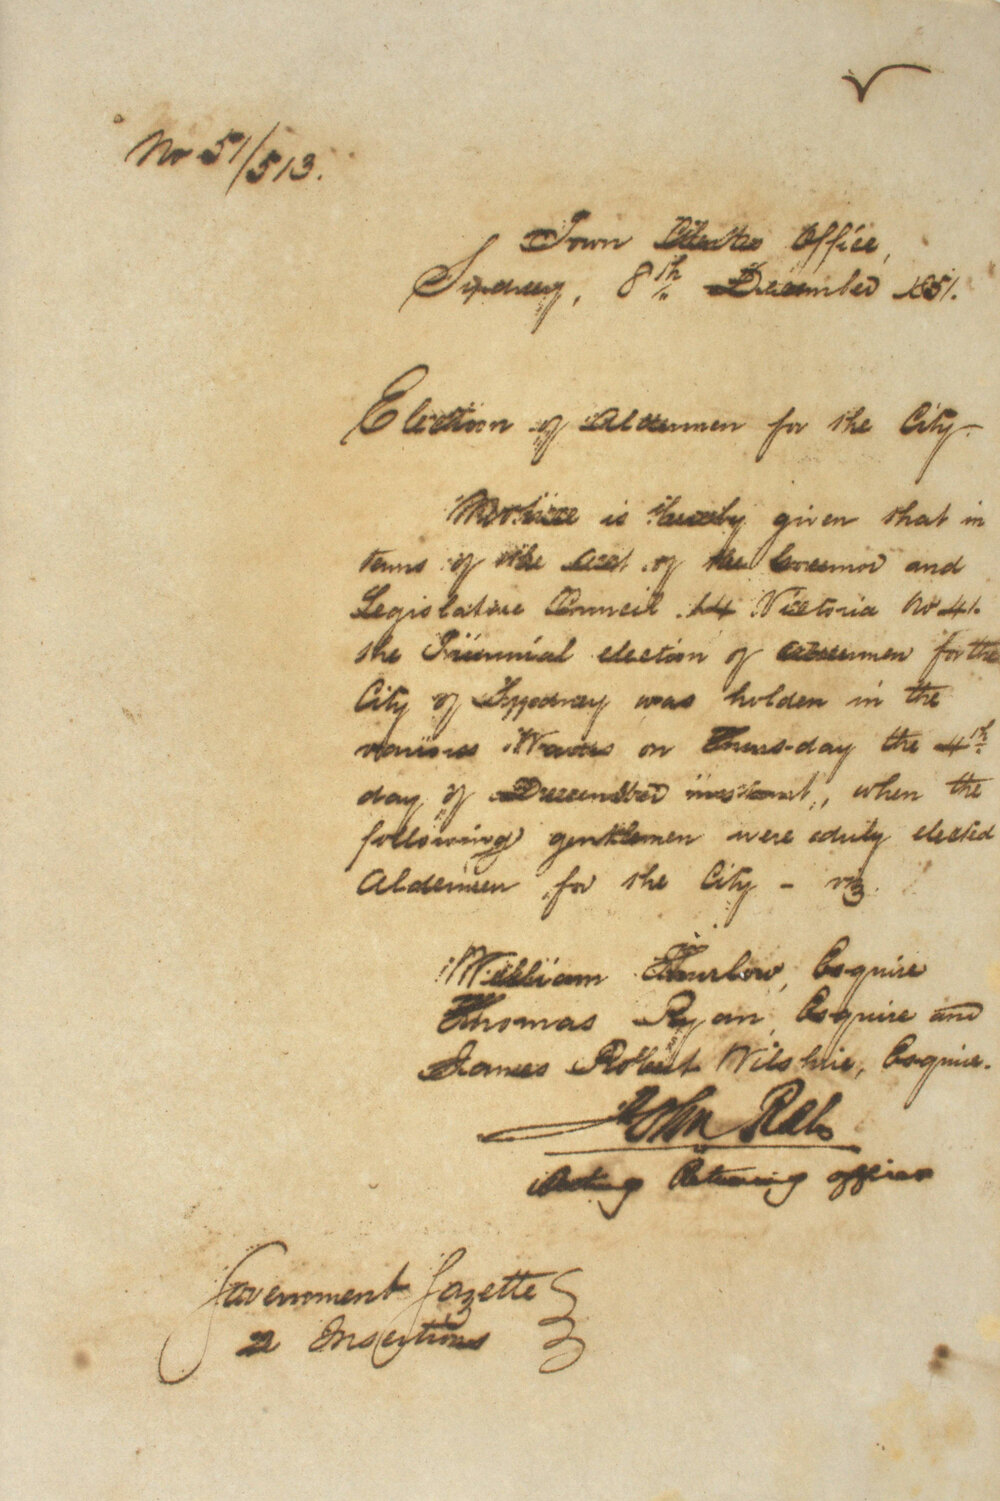 No 51/513.
Town Clerks Office,
Sydney, 8th December 1851.
Election of Aldermen for the City
Notice is hereby given that in
terms of the Act of the Governor and
Legislative Council 14 Victoria No 41.
the Triennial election of Aldermen for the
City of Sydney was holden in the
various Wards on Thursday the 4th
day of December instant, when the
following gentlemen were duly elected
Aldermen for the City - viz
William Thurlow, Esquire
Thomas Ryan, Esquire and
James Robert Wilshire, Esquire.
John Rae
Acting Returning officer
Government Gazette
2 Insertions